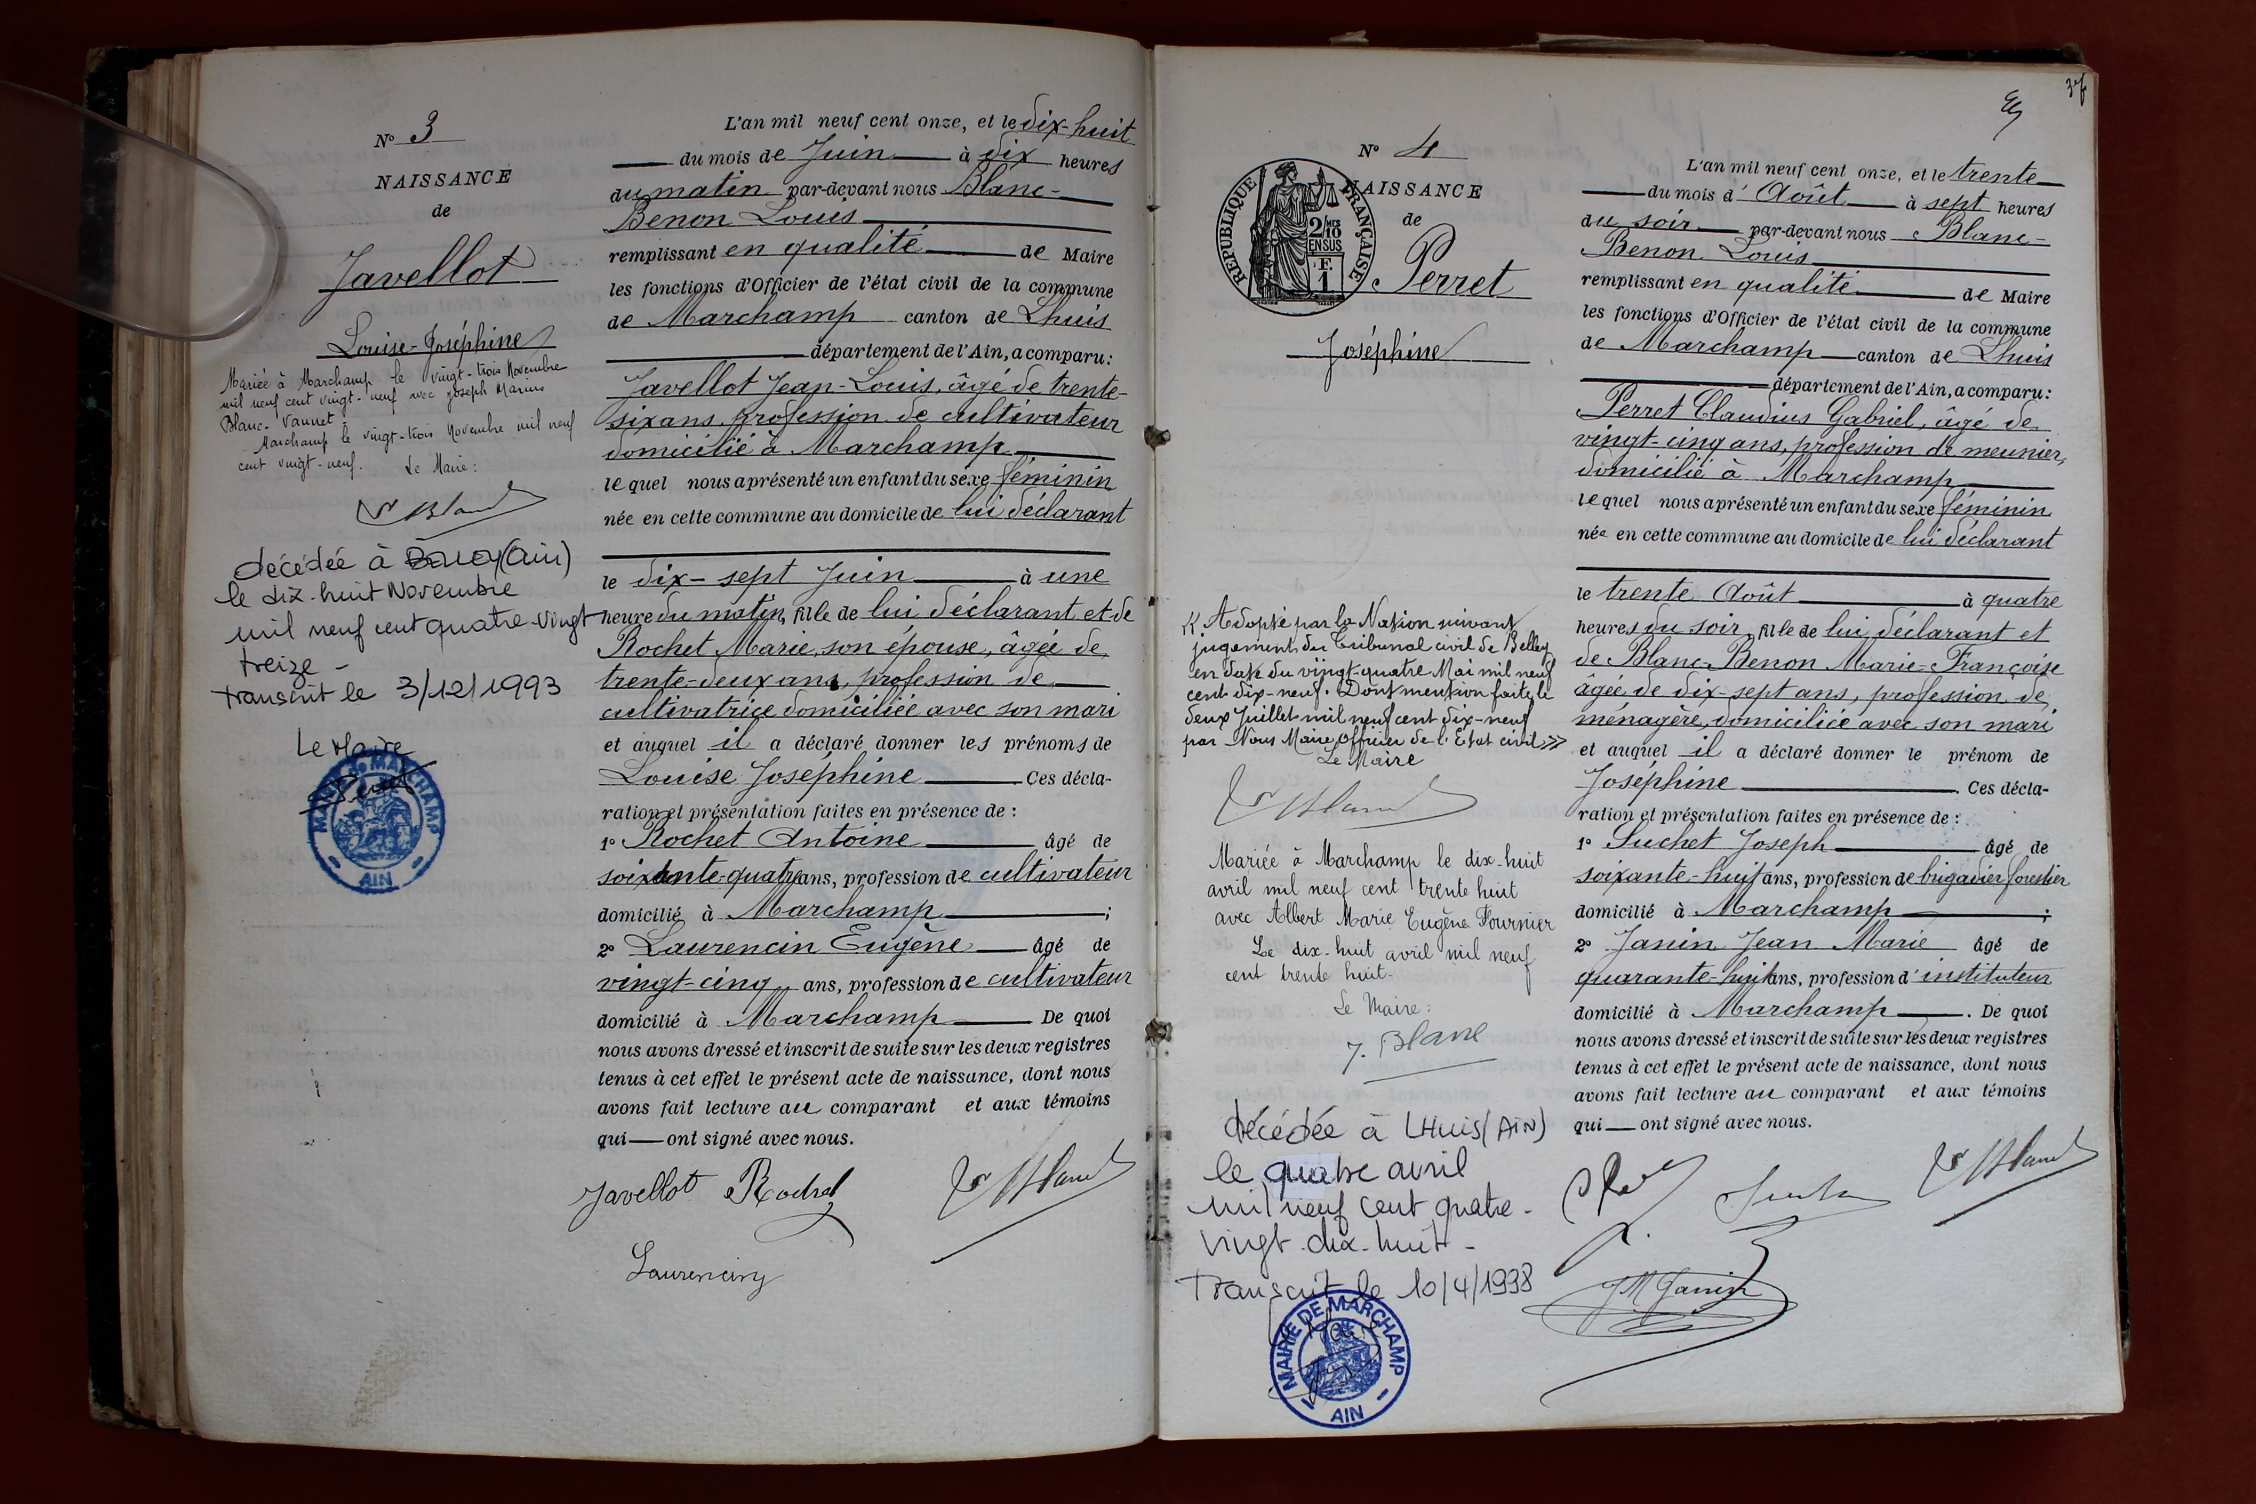 N° 3
NAISSANCE
de
Javellot
Louise-Joséphine
Mariée à Marchamp le vingt-trois Novembre
mil neuf cent vingt-neuf avec Joseph Marius
Blanc-Vannet.
Marchamp le vingt-trois Novembre mil neuf
cent vingt-neuf. Le Maire:
décédée à Belley (Ain)
le dix-huit Novembre
mil neuf cent quatre-vingt
treize -
transcrit le 3/12/1993
Le Maire
MAIRIE DE MARCHAMP
AIN
L'an mil neuf cent onze, et le dix-huit
du mois de Juin à dix heures
du matin par-devant nous Blanc-
Benon Louis
remplissant en qualité de Maire
les fonctions d'Officier de l'état civil de la commune
de Marchamp canton de Lhuis
département de l'Ain, a comparu:
Javellot Jean-Louis, âgé de trente-
six ans, profession de cultivateur
domicilié à Marchamp
lequel nous a présenté un enfant du sexe féminin
née en cette commune au domicile de lui déclarant
le dix-sept Juin à une
heure du matin, fille de lui déclarant et de
Rochet Marie, son épouse, âgée de
trente-deux ans, profession de
cultivatrice domiciliée avec son mari
et auquel il a déclaré donner les prénoms de
Louise Joséphine Ces décla-
ration et présentation faites en présence de :
1° Rochet Antoine âgé de
soixante-quatre ans, profession de cultivateur
domicilié à Marchamp ;
2° Laurencin Eugène âgé de
vingt-cinq ans, profession de cultivateur
domicilié à Marchamp De quoi
nous avons dressé et inscrit de suite sur les deux registres
tenus à cet effet le présent acte de naissance, dont nous
avons fait lecture au comparant et aux témoins
qui ont signé avec nous.
Javellot Rochet
Laurencin
37
N° 4
NAISSANCE
de
RÉPUBLIQUE FRANÇAISE
2/10
EN SUS
1 F.
Perret
Joséphine
« Adopté par la Nation suivant
jugement du Tribunal civil de Belley
en date du vingt-quatre Mai mil neuf
cent dix-neuf. Dont mention faite le
deux Juillet mil neuf cent dix-neuf
par Nous Maire Officier de l'Etat civil »
Le Maire
Mariée à Marchamp le dix-huit
avril mil neuf cent trente huit
avec Albert Marie Eugène Fournier
Le dix-huit avril mil neuf
cent trente huit-
Le Maire:
J. Blanc
décédée à LHUIS (AIN)
le quatre avril
mil neuf cent quatre-
vingt-dix-huit -
Transcrit le 10/4/1998
MAIRIE DE MARCHAMP
AIN
L'an mil neuf cent onze, et le trente
du mois d'Août à sept heures
du soir par-devant nous Blanc-
Benon Louis
remplissant en qualité de Maire
les fonctions d'Officier de l'état civil de la commune
de Marchamp canton de Lhuis
département de l'Ain, a comparu:
Perret Claudius Gabriel, âgé de
vingt-cinq ans, profession de meunier,
domicilié à Marchamp
lequel nous a présenté un enfant du sexe féminin
née en cette commune au domicile de lui déclarant
le trente Août à quatre
heures du soir, fille de lui déclarant et
de Blanc-Benon Marie-Françoise
âgée de dix-sept ans, profession de
ménagère, domiciliée avec son mari
et auquel il a déclaré donner le prénom de
Joséphine . Ces décla-
ration et présentation faites en présence de :
1° Suchet Joseph âgé de
soixante-huit ans, profession de brigadier forestier
domicilié à Marchamp ;
2° Janin Jean Marie âgé de
quarante-huit ans, profession d'instituteur
domicilié à Marchamp . De quoi
nous avons dressé et inscrit de suite sur les deux registres
tenus à cet effet le présent acte de naissance, dont nous
avons fait lecture au comparant et aux témoins
qui ont signé avec nous.
JM Janin